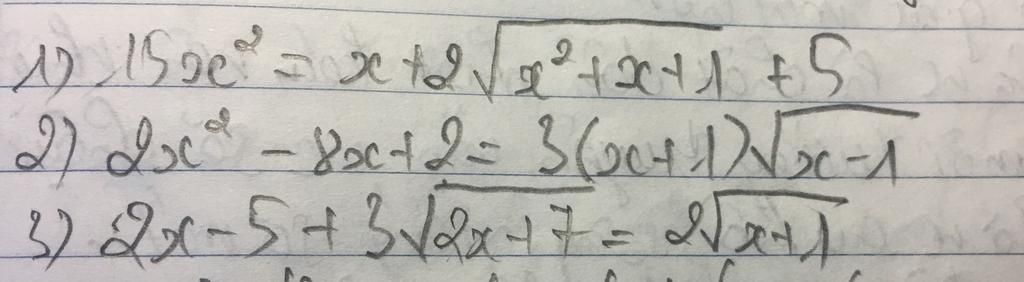 1) 15x² = x+2√(x²+x+1) +5
2) 2x² - 8x+2 = 3(x+1)√(x-1)
3) 2x-5+3√(2x+7) = 2√(x+1)